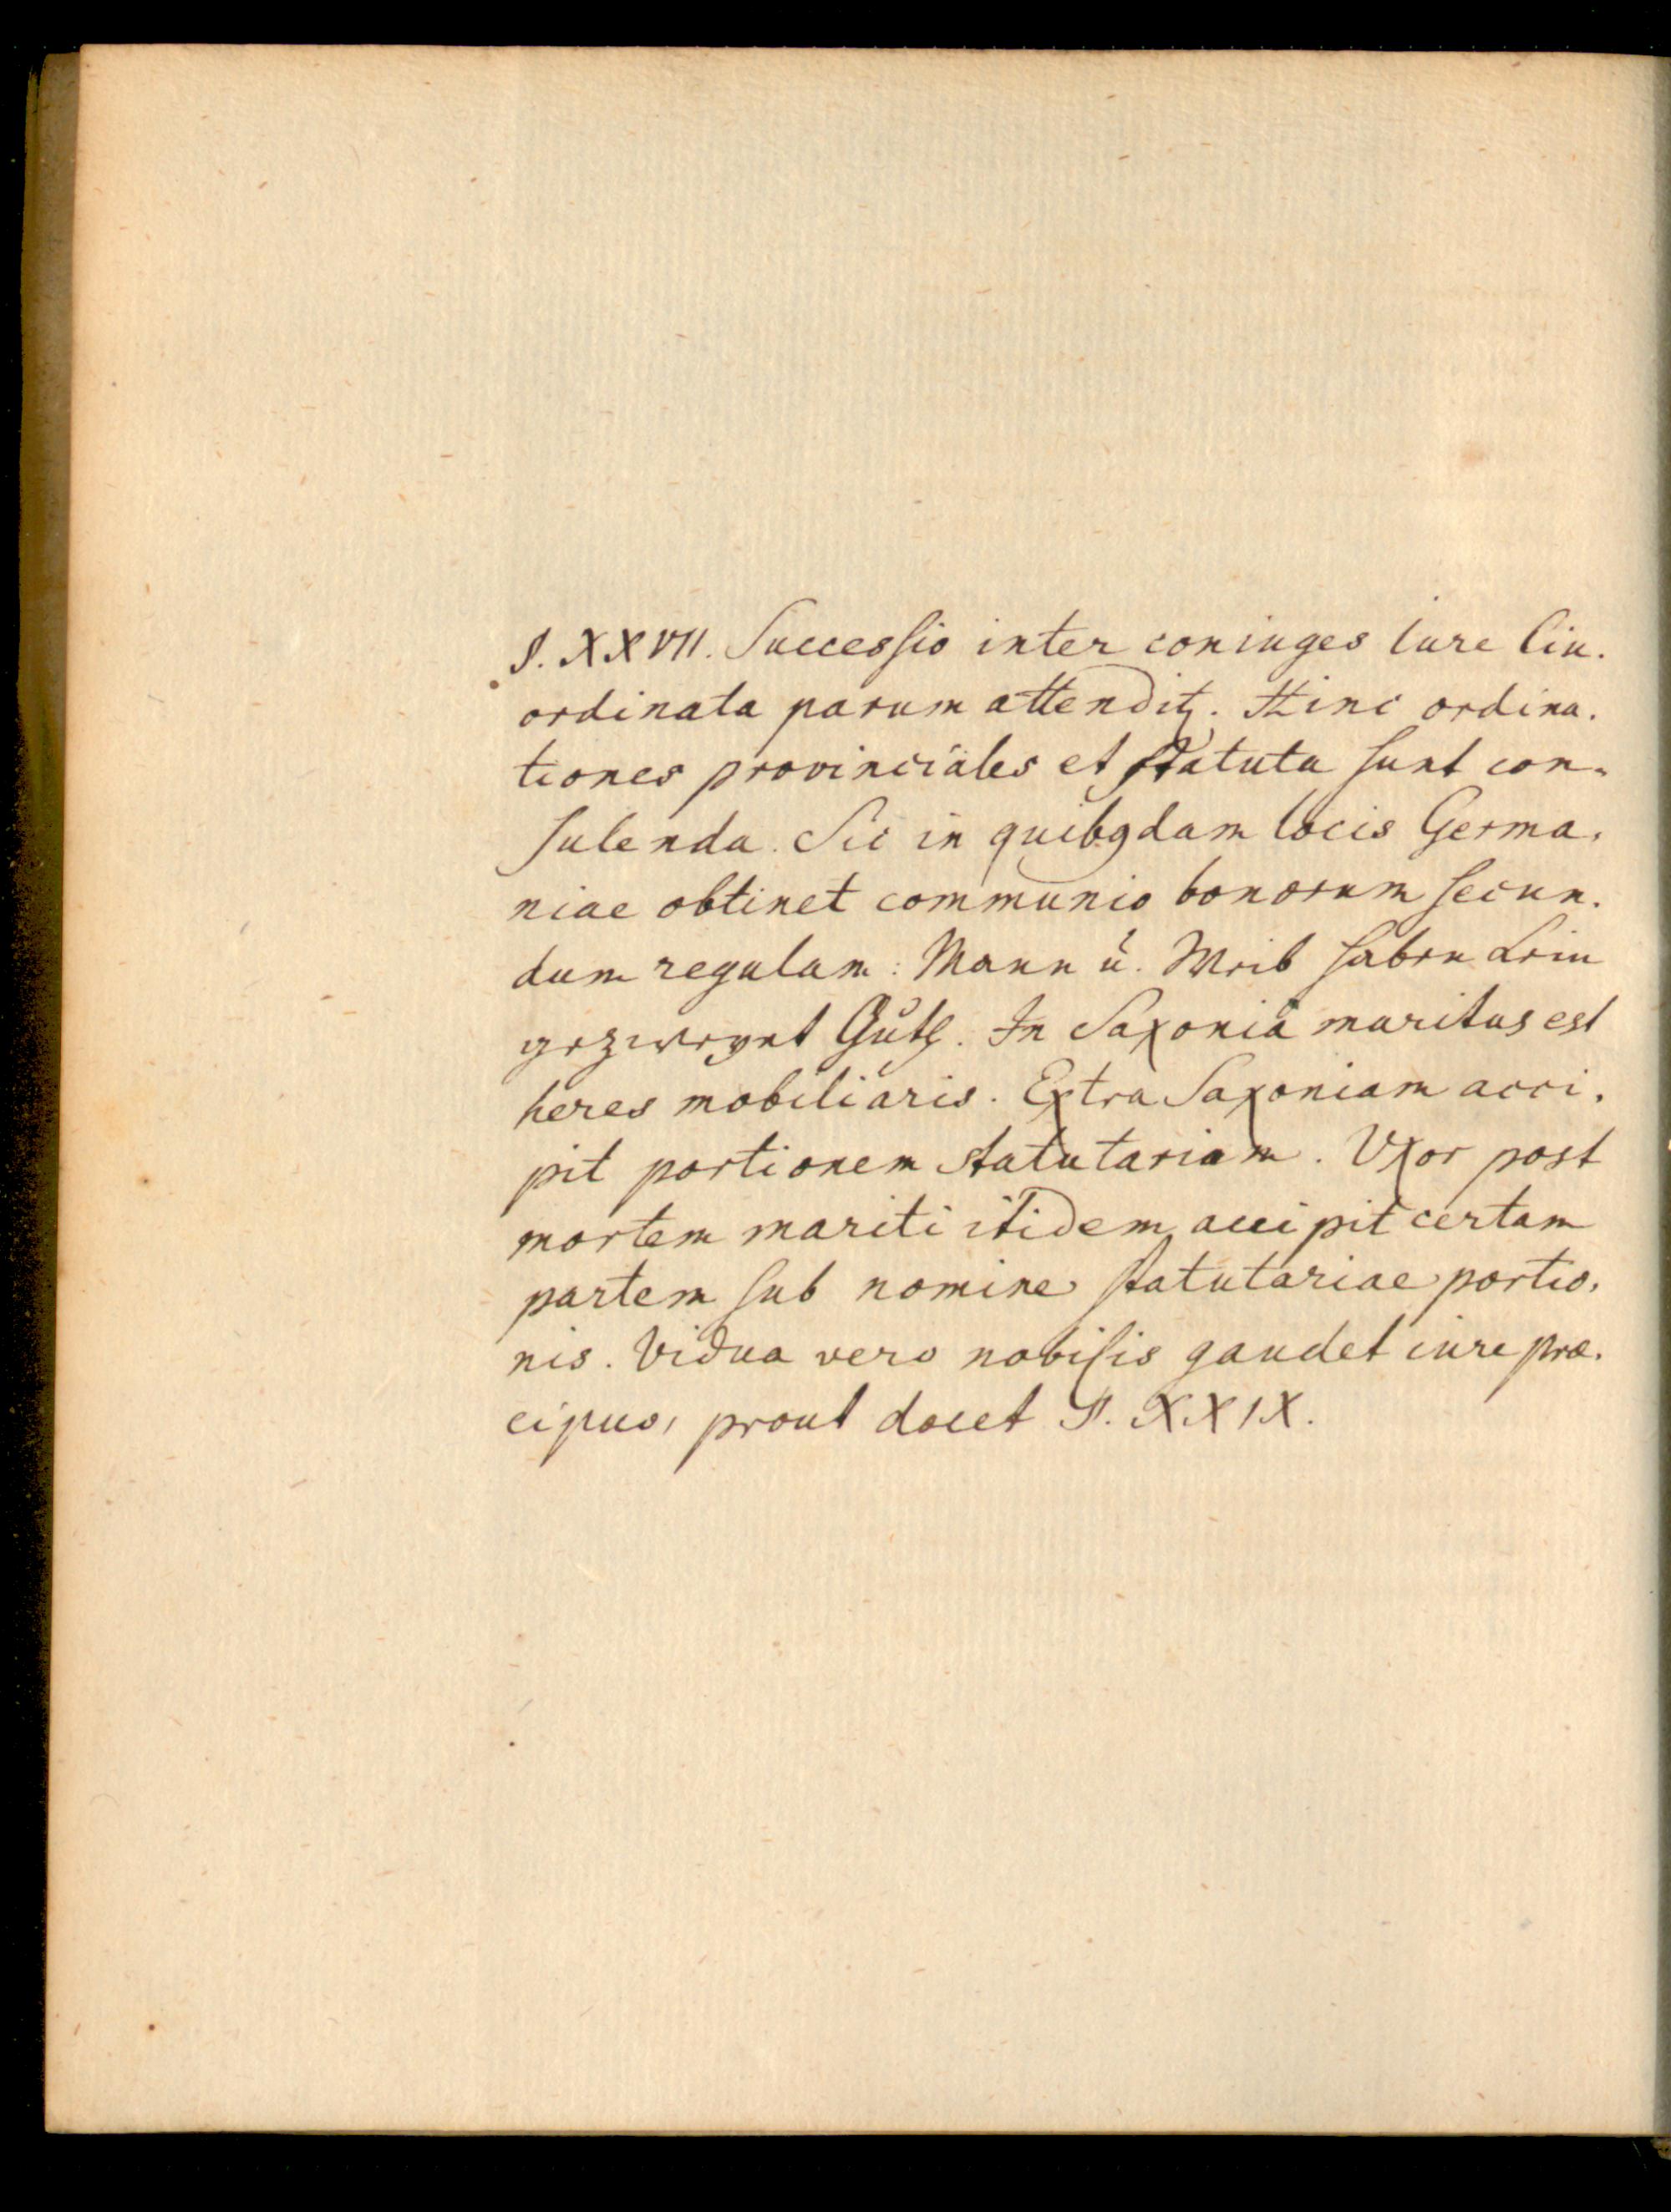 §. XXVII. Successio inter coniuges Iure Ciu.
ordinata parum attenditꝫ. Hinc ordina-
tiones provinciales et statuta sunt con-
sulenda. Sic in quibꝯdam locis Germa-
niae obtinet communio bonorum secun-
dum regulam: Mann u. Weib haben kein
gezweyet Guth. In Saxonia maritus est
heres mobiliaris. Extra Saxoniam acci-
pit portionem statutariam. Vxor post
mortem mariti itidem accipit certam
partem sub nomine statutariae portio-
nis. Vidua vero nobilis gaudet iure præ-
cipuo, prout docet §. XXIX.